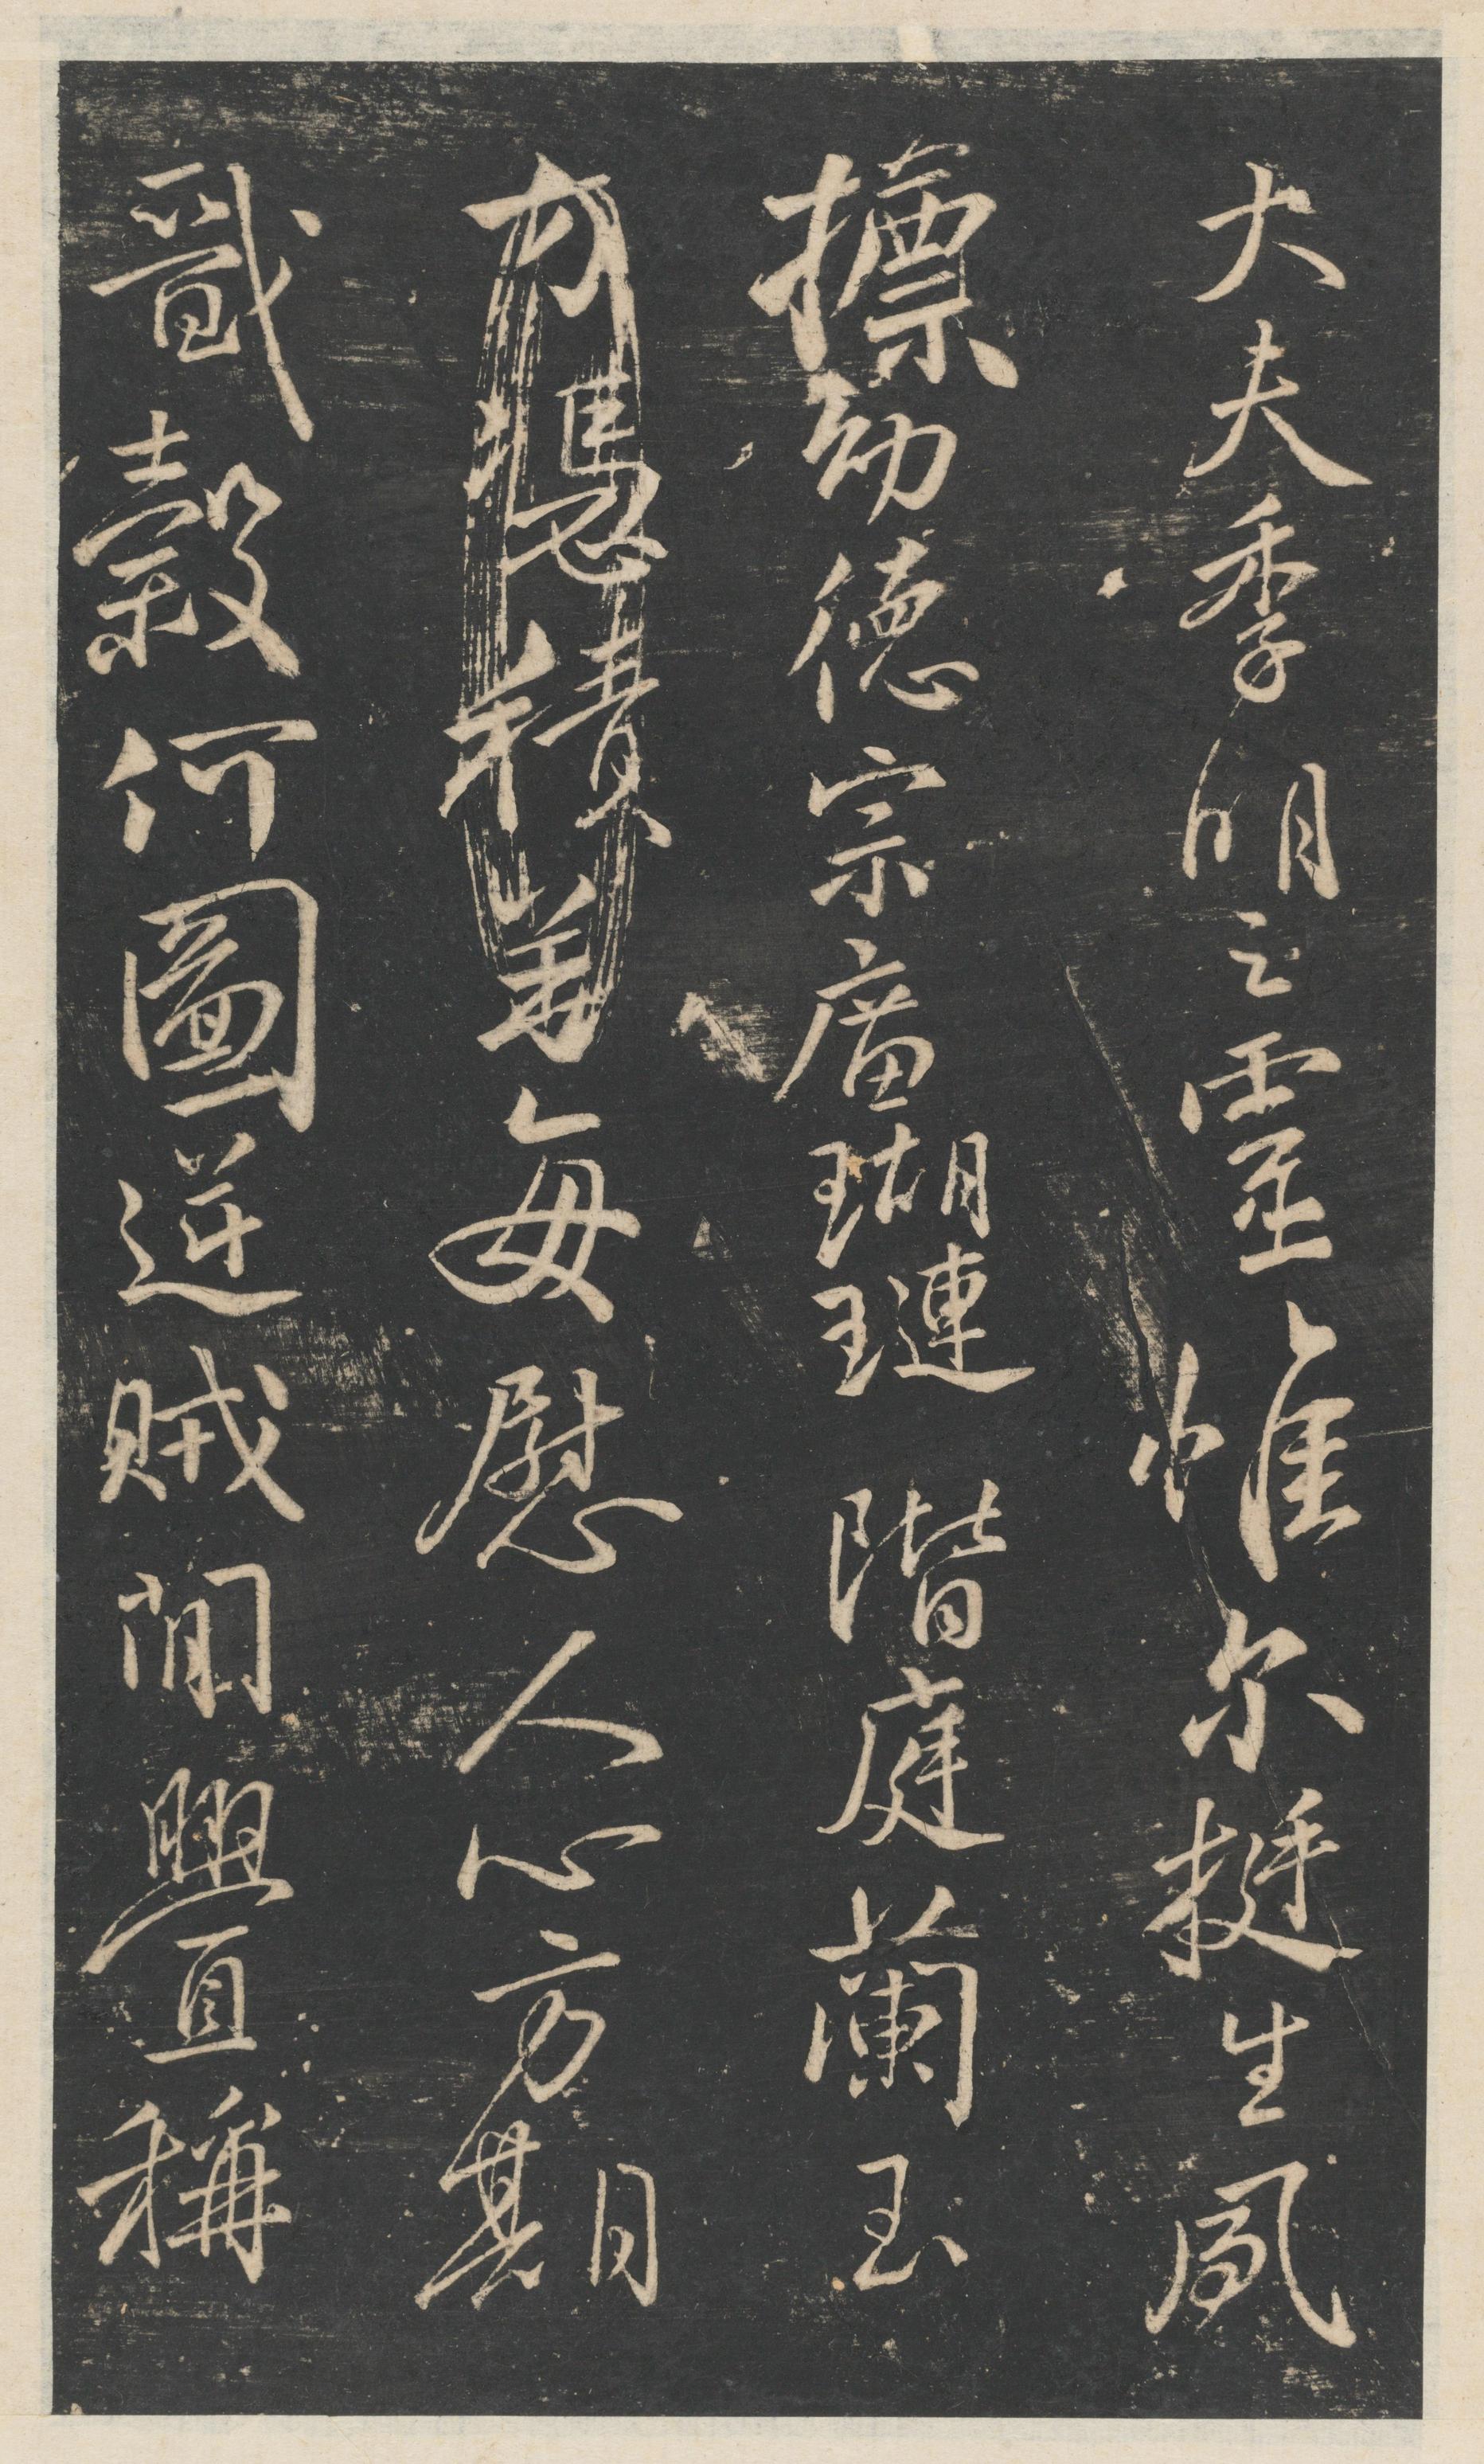 大夫季明之靈惟尔挺生夙
摽幼德宗庿瑚璉階庭蘭玉
方憑積善每慰人心方期
戩穀何圖逆賊閒釁稱